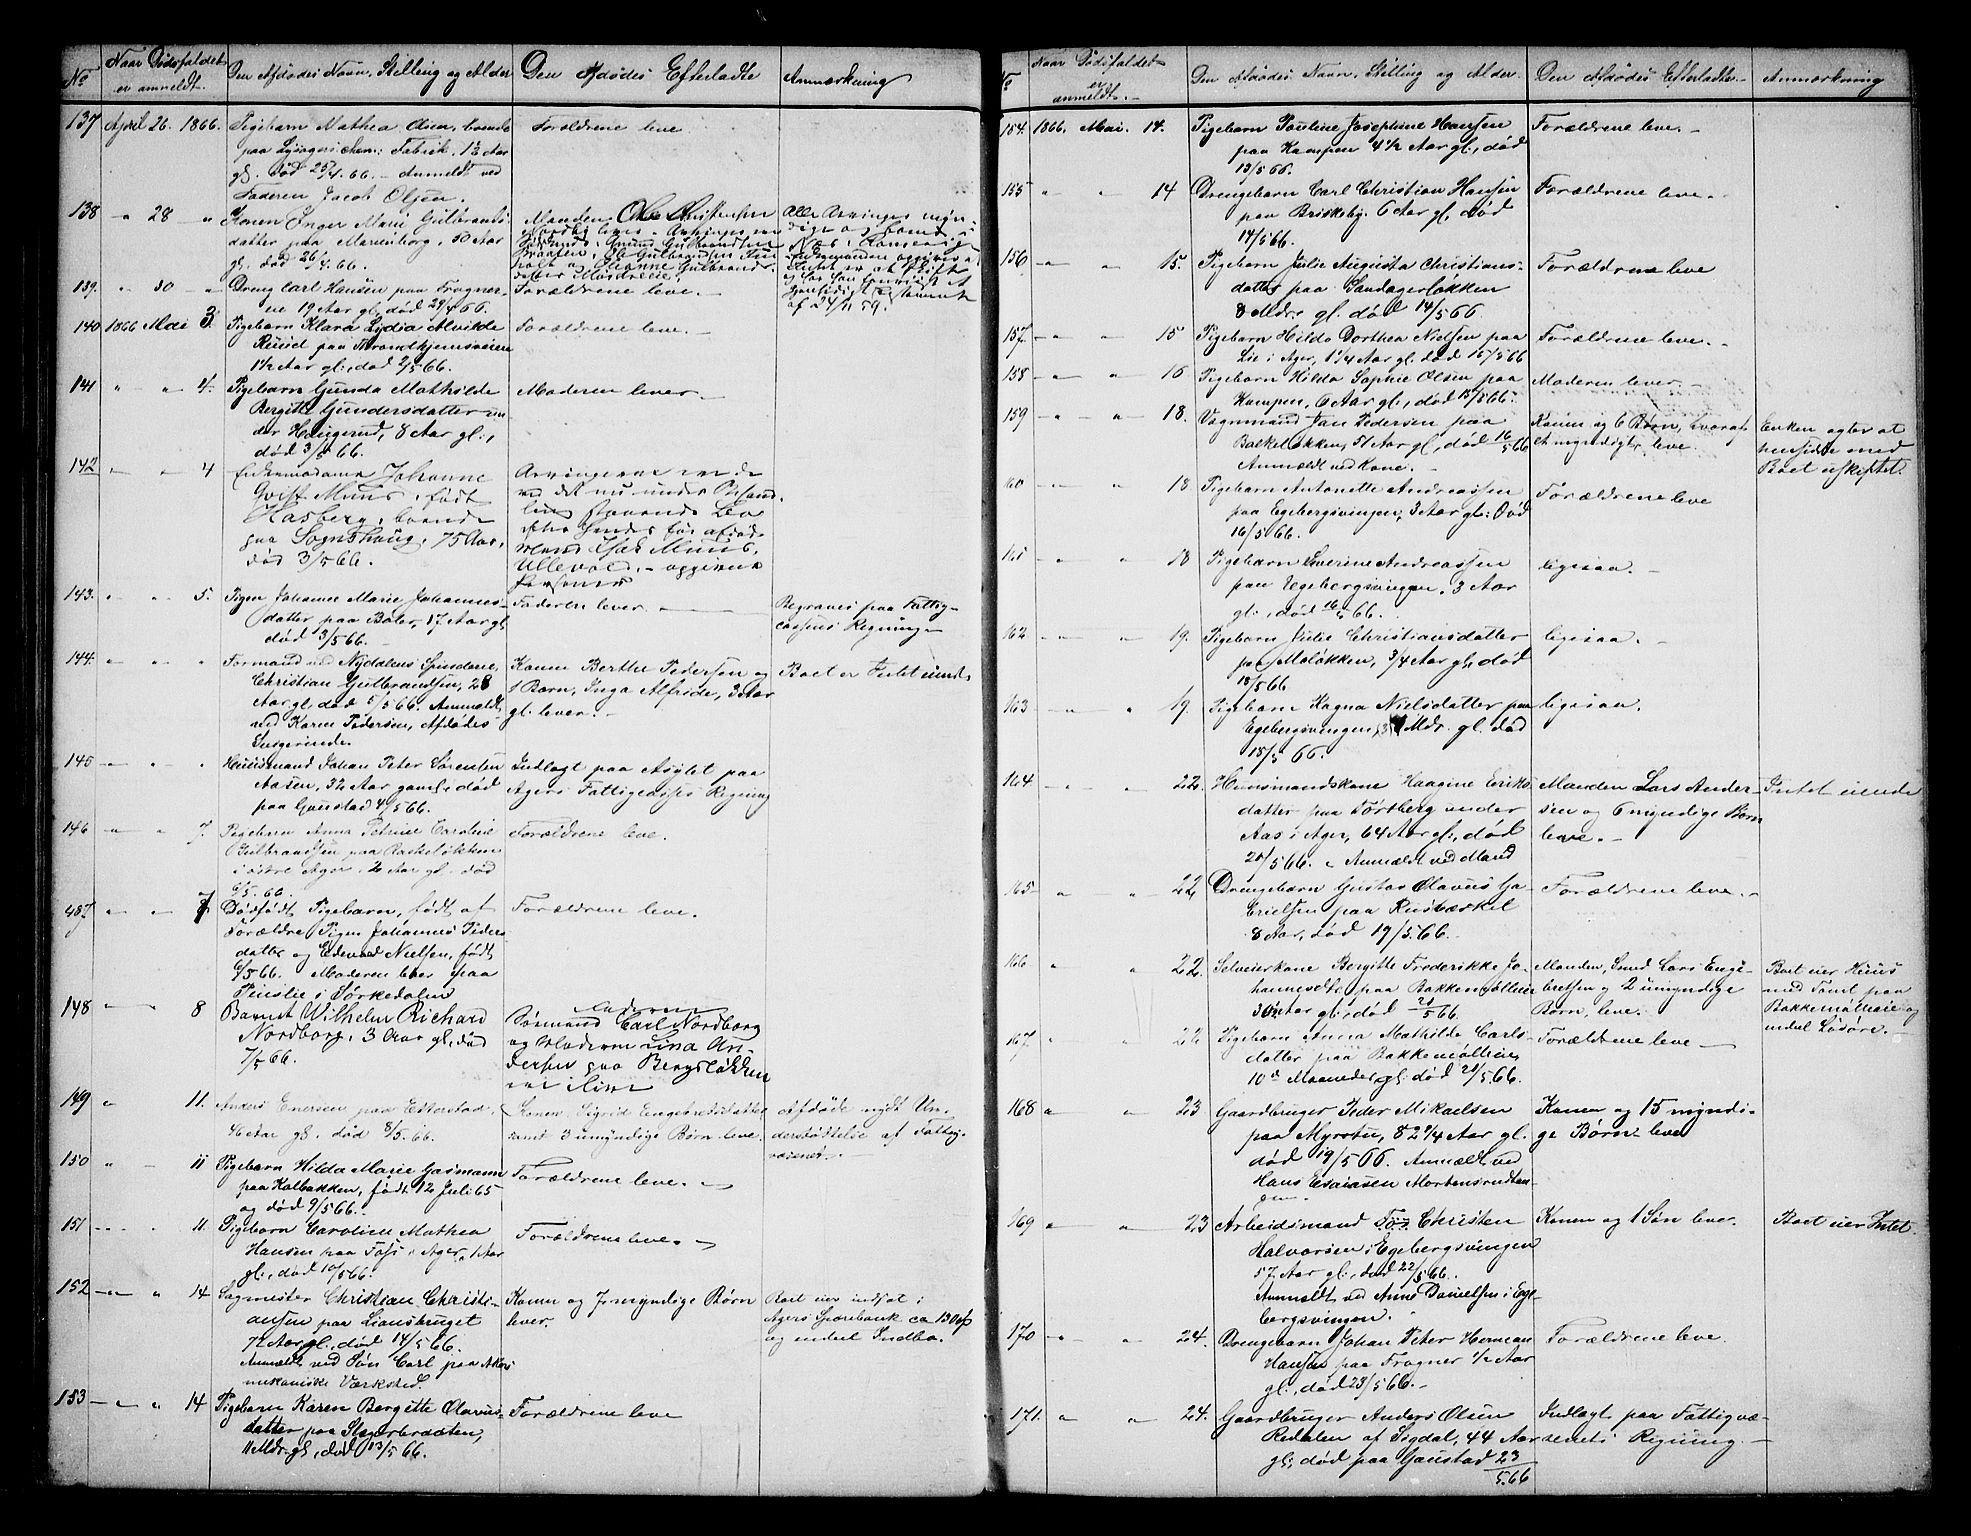 No
Naar Dödsfaldet
er anmeldt.
Den Afdødes Navn, Stilling og Alder
Den Afdødes Efterladte
Anmærkning
137 April 26. 1866. Pigebarn Mathea Olsen, boende Forældrene leve
paa Lysagers chem: Fabrik, 1½ Aar
gl. død 25/4.66. - Anmeldt ved
Faderen Jacob Olsen.
138 " 28 " Konen Inger Marie Gulbrands- Manden Ole Christensen Alle Arvinger myn-
datter paa Marienborg, 50 Aar
gl. død 26/4.66.
139. " 30 " Dreng Carl Hansen paa Frogner- Forældrene leve. -
ne 19 Aar gl., død 29/4 66. af 24/11 59.
140 1866 Mai 3. Pigebarn Klara Lydia Alvilde Forældrene leve. -
Ruud paa Throndhjemsveien
1½ Aar gl., død 2/5 66.
141 " " 4. Pigebarn Gunda Mathilde Moderen lever. -
Bergitte Gundersdatter un-
der Haugerud, 8 Aar gl.,
død 3/5 66.
142 " " 4 Enkemadame Johanne Arvingerne ere de
Qvist Muus, født ved det nu under Behand-
Hasberg, boende ling staaende Bo
paa Sognshaug, 75 Aar, efter hendes før afdøde
død 3/5 66. Mand Isak Muus,
Ullevold, - opgivne
Personer
143. " " 5. Pigen Johanne Marie Johannes- Faderen lever. - Begraves paa Fattig-
datter paa Bøler, 17 Aar gl. cassens Regning -
død 3/5 66. -
144. " " " Formand ved Nydalens Spinderie, Konen Berthe Pedersen og Boet er Intet eiende
Christian Gulbrandsen, 28 1 Barn, Inga Alfride, 3 Aar
Aar gl., død 5/5 66. Anmeldt gl. lever. -
ved Karen Pedersen, Afdødes
Svigerinde.
145 " " " Huusmand Johan Peter Sørensen Indlagt paa Asylet paa
Aasen, 32 Aar gaml., død Agers Fattigcasses Regning
paa Gaustad 4/5 66.
146 " " 7. Pigebarn Anna Petrine Caroline Forældrene leve.
Gulbrandsen paa Raskeløkken
i østre Ager, 2 Aar gl. død
6/5. 66.
487 " " 7. Dødfødt Pigebarn, født af Forældrene leve.
Forældre Pigen Johannes Peders
datter og Edevard Nielsen, født
6/5 66. Moderen boer paa
i Sørkedalen
148 " " 8 Barnet Wilhelm Richard Faderen
Nordborg, 3 Aar gl., død Sømand Carl Nordborg
7/5 66. og Moderen Lina An-
dersen paa Bergsløkken
ere i live
149 " 11. Anders Enersen paa Etterstad, Konen Sigrid Engebretsdatter Afdøde nydt Un-
46 Aar gl. død 8/5. 66. samt 3 umyndige Børn leve. derstøttelse af Fattig-
væsenet. -
150 " - 11 Pigebarn Hilda Marie Gasmann Forældrene leve. -
paa Kalbakken, født 12 Juli 65
og død 9/5 66.
151 " " 11. Pigebarn Caroline Mathea Forældrene leve. -
Hansen paa Foss i Ager, 1 Aar
gl., død 10/5 66.
152 " " 14 Sagmester Christian Christi- Konen og 7 myndige Børn Boet eier indsat i
ansen paa Liansbruget lever. Agers Sparebank ca 130
72 Aar gl., død 14/5 66. og endeel Indbo.
Anmeldt ved Søn Carl paa Akers
mekaniske Værksted.
153 " " 14 Pigebarn Karen Bergitte Olavus- Forældrene leve
datter paa Skyterbraaten,
11 Mdr. gl., død 13/5 66.
No
Naar Dödsfaldet
er
anmeldt. -
Den Afdødes Navn, Stilling og Alder.
Den Afdødes Efterladte. -
Anmærkning
154. 1866. Mai. 14. Pigebarn Pauline Josephine Hansen Forældrene leve. -
paa Kampen 4½ Aar gl., død
13/5 66.
155 " " 14 Drengebarn Carl Christian Hansen Forældrene leve. -
paa Briskeby. 6 Aar gl, død
14/5 66.
156 " " 15. Pigebarn Julie Augusta Christians- Forældrene leve
datter paa Sandagerløkken
8 Mdr. gl. død 14/5 66
157. " " 15 Pigebarn Hilda Dorthea Nielsen paa Forældrene leve. -
Lie i Ager, 1¼ Aar gl. død 15/5 66
158 " " 16 Pigebarn Hilda Sophie Olsen paa Moderen lever. -
Kampen, 6 Aar gl., død 15/5 66.
159 " " 18. Vognmand Jan Pedersen paa Konen og 6 Børn, hvoraf Enken agter at
Balkeløkken, 51 Aar gl, død 16/5 66 et myndigt, leve. hensidde med
Anmeldt ved Kone. - Boet uskiftet.
160 " " 18 Pigebarn Antonette Andreassen Forældrene leve
paa Egebergsvingen, 3 Aar gl: død
16/5 66.
161 " " 18 Pigebarn Severine Andreassen ligesaa. -
paa Egebergsvingen. 3 Aar
gl., død 16/5 66.
162 " " 19. Pigebarn Julie Christiansdatter ligesaa. -
paa Maløkken, 3/4 Aar gl., død
18/5 66
163 " " 19. Pigebarn Hagna Nielsdatter paa ligesaa.
Egebergsvingen, 3 Mdr. gl. død
18/5 66.
164 " " 22. Huusmandskone Haagine Eriks- Manden Lars Ander- Intet eiende
datter paa Tørtberg under sen og 6 myndige Børn
Aas i Ager, 64 Aar gl., død leve. -
20/5 66. - Anmeldt ved Mand
165 " " 22 Drengebarn Gustav Olavus Ga- Forældrene leve. -
brielsen paa Rusbækkel
8 Aar, død 19/5. 66.
166 " " 22. Selveierkone Bergitte Frederikke Jo- Manden, Smed Lars Enge- Boet eier Huus
hannesdtr paa Bakkemøllien bretsen og 2 umyndige med Tomt paa
30½ Aar gl., død 20/5 66. Børn, leve. Bakkemøllien og
endel Løsøre. -
167. " " 22 Pigebarn Anna Mathilde Carls- Forældrene leve -
datter paa Bakkemøllien,
10 Maaneder gl. død 21/5 66.
168 " " 23 Gaardbruger Peder Mikaelsen Konen og 15 myndi-
paa Myrstu, 82¼ Aar gl. ge Børn leve
død 19/5 66. Anmeldt ved
Hans Esaiasen Mortensrudtan-
gen -
169 " " 23 Arbeidsmand Christen Konen og 1 Søn lever. Boet eier Intet.
Halvorsen i Egebergsvingen
57 Aar gl., død 22/5 66.
Anmeldt ved Anne Danielsen i Ege-
bergsvingen.
170 " " 24. Drengebarn Johan Peter Herman Forældrene leve.
Hansen paa Frogner ½ Aar
gl., død 23/5 66. -
171. " " 24. Gaardbruger Anders Olsen Indlagt paa Fattigvæ-
Redalen af Sigdal, 44 Aar senets Regning. -
gl., død paa Gaustad 23/5.66